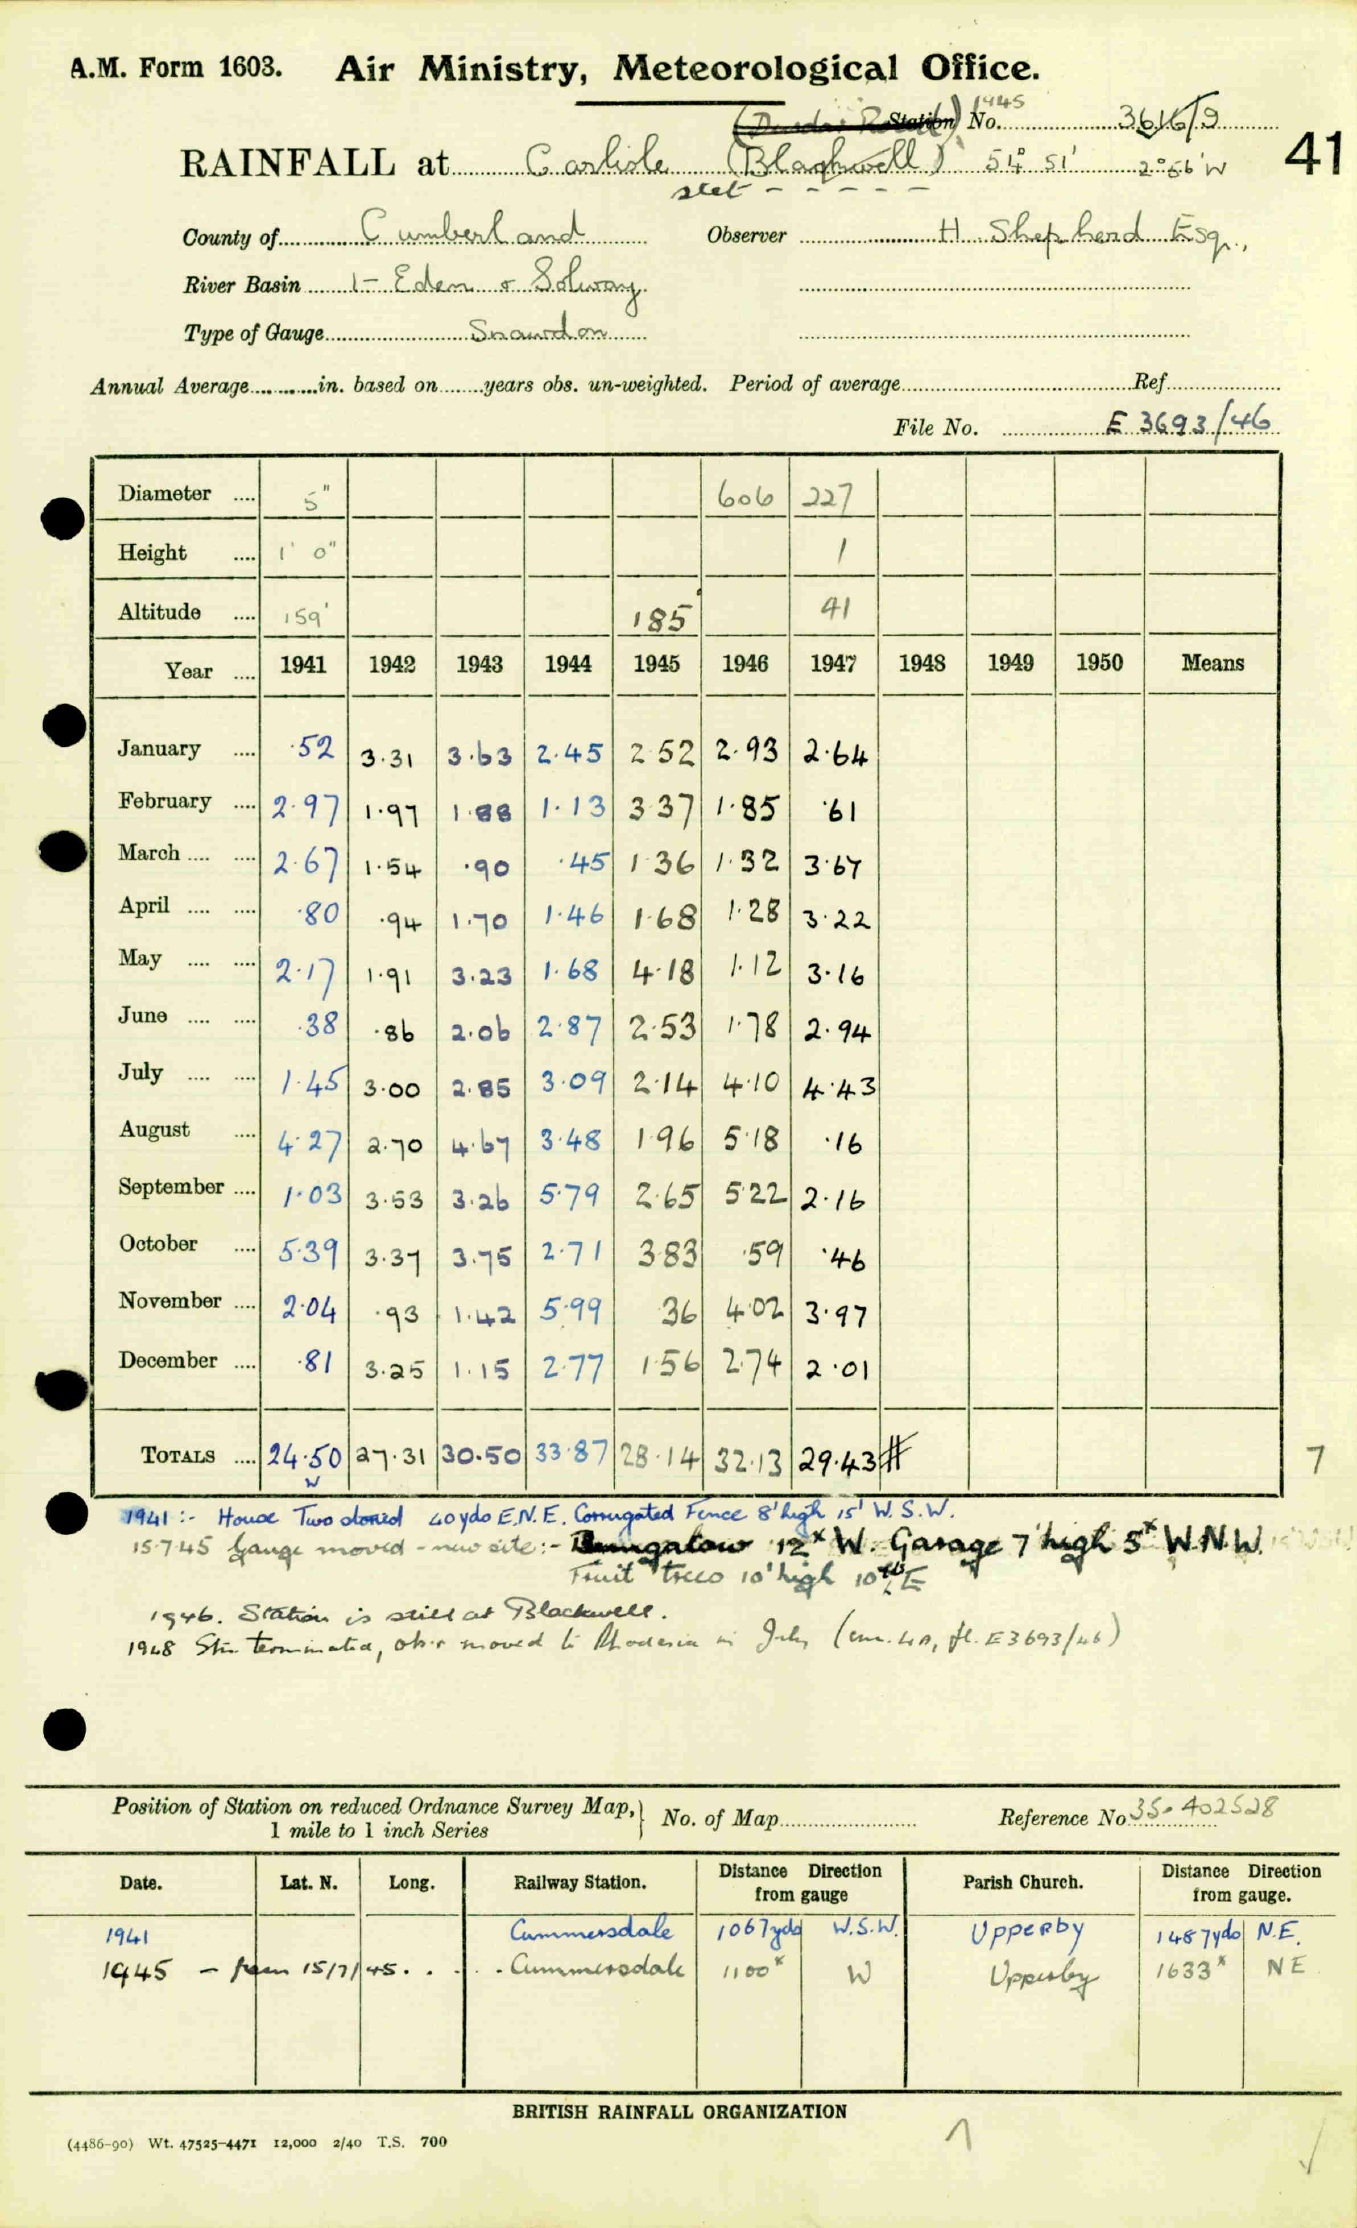 A.M. Form 1603. Air Ministry, Meteorological Office.
1945
Station No. 3616/9
RAINFALL at Carlisle (Blackwell) 54° 51' 2° 56' W
stet
41
County of Cumberland Observer H. Shepherd Esq.,
River Basin 1 - Eden & Solway
Type of Gauge Snowdon
Annual Average in. based on years obs. un-weighted. Period of average Ref
File No. E 3693/46
Diameter 5" 606 227
Height 1' 0" 1
Altitude 159' 185' 41
Year 1941 1942 1943 1944 1945 1946 1947 1948 1949 1950 Means
January ·52 3·31 3·63 2·45 2 52 2·93 2·64
February 2·97 1·97 1·88 1·13 3 37 1·85 ·61
March 2·67 1·54 ·90 ·45 1 36 1·32 3·67
April ·80 ·94 1·70 1·46 1·68 1·28 3·22
May 2·17 1·91 3·23 1·68 4·18 1·12 3·16
June ·38 ·86 2·06 2·87 2·53 1·78 2·94
July 1·45 3·00 2·85 3·09 2·14 4·10 4·43
August 4·27 2·70 4·67 3·48 1·96 5·18 ·16
September 1·03 3·53 3·26 5·79 2·65 5·22 2·16
October 5·39 3·37 3·75 2·71 3 83 ·59 ·46
November 2·04 ·93 1·42 5·99 36 4·02 3·97
December ·81 3·25 1·15 2·77 1·56 2·74 2·01
TOTALS 24·50 27·31 30·50 33·87 28·14 32·13 29·43 #
7
1941 :- House Two storied 40 yds E.N.E. Corrugated Fence 8' high 15' W.S.W.
15·7·45 Gauge moved - new site :- Bungalow 12x W. Garage 7' high 5x W.N.W.
Fruit trees 10' high 10 E
1946. Station is still at Blackwell.
1948 Stn terminated, obsr moved to Rhodesia in July (E3693/46)
Position of Station on reduced Ordnance Survey Map,
1 mile to 1 inch Series
No. of Map Reference No 35·402528
Date. Lat. N. Long. Railway Station. Distance Direction from gauge Parish Church. Distance Direction from gauge.
1941 Cummersdale 1067 yds W.S.W. Upperby 1487 yds N.E.
1945 - from 15/7/45 . . . . Cummersdale 1100x W Upperby 1633x NE
BRITISH RAINFALL ORGANIZATION
(4486-90) Wt. 47525-4471 12,000 2/40 T.S. 700